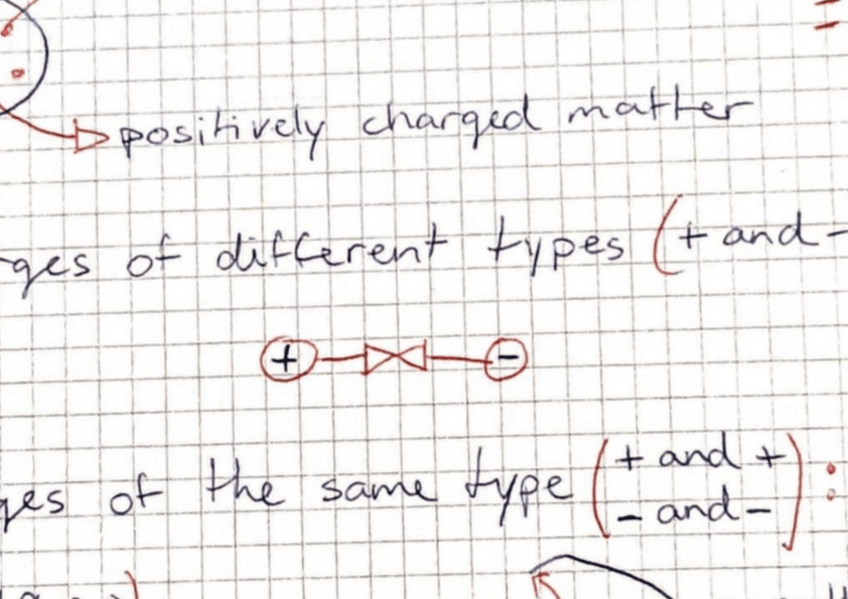 positively charged matter
ges of different types (+ and -
+ -
ges of the same type (+ and +
- and -) :